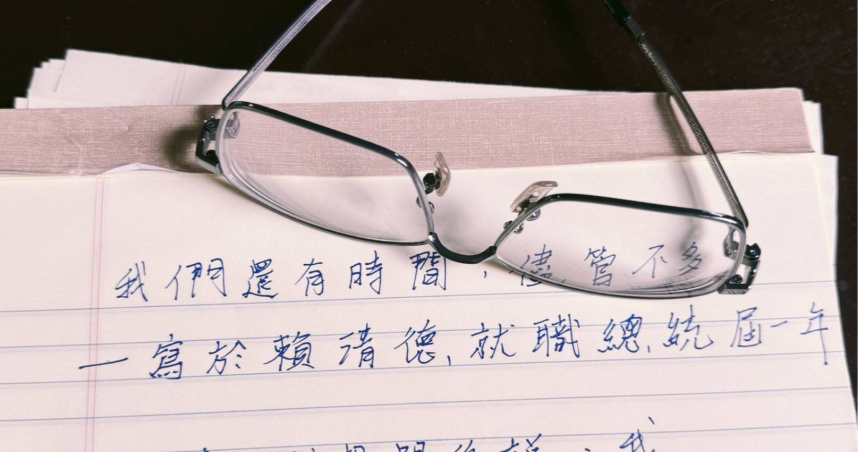 我們還有時間，儘管不多
一寫於賴清德,就職總,統屆一年
我